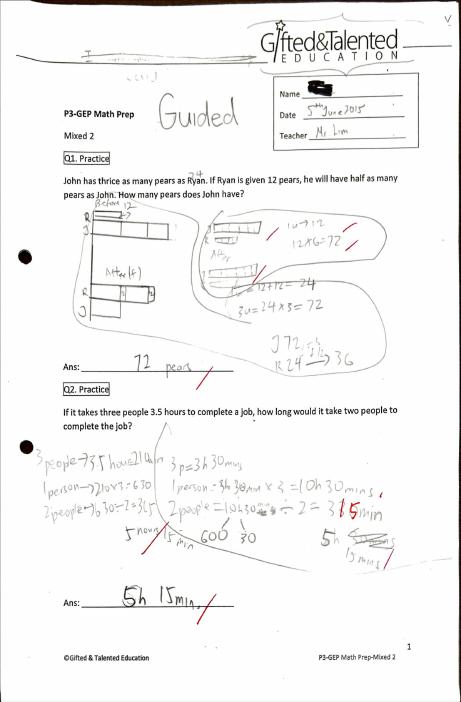 Gifted&Talented
EDUCATION
Name
Date 5th June 2015
Teacher Mr Lim
P3-GEP Math Prep
Guided
Mixed 2
Q1. Practice
24
John has thrice as many pears as Ryan. If Ryan is given 12 pears, he will have half as many
pears as John. How many pears does John have?
Before 12
R
J
1u→12
12×6=72
After
After(4)
R
J
=12+12=24
3u=24×3=72
J 72
R 24 → 36
Ans: 72 pears
Q2. Practice
If it takes three people 3.5 hours to complete a job, how long would it take two people to
complete the job?
3people→3.5 hou=210min
1person→210×3=630
2people→630÷2=315
5 hours 15 min
3p=3h 30mins
1person=3h 30min × 3=10h 30mins
2people=10h30 ÷ 2= 315min
600 30
5h
15mins
Ans: 5h 15min
1
©Gifted & Talented Education
P3-GEP Math Prep-Mixed 2